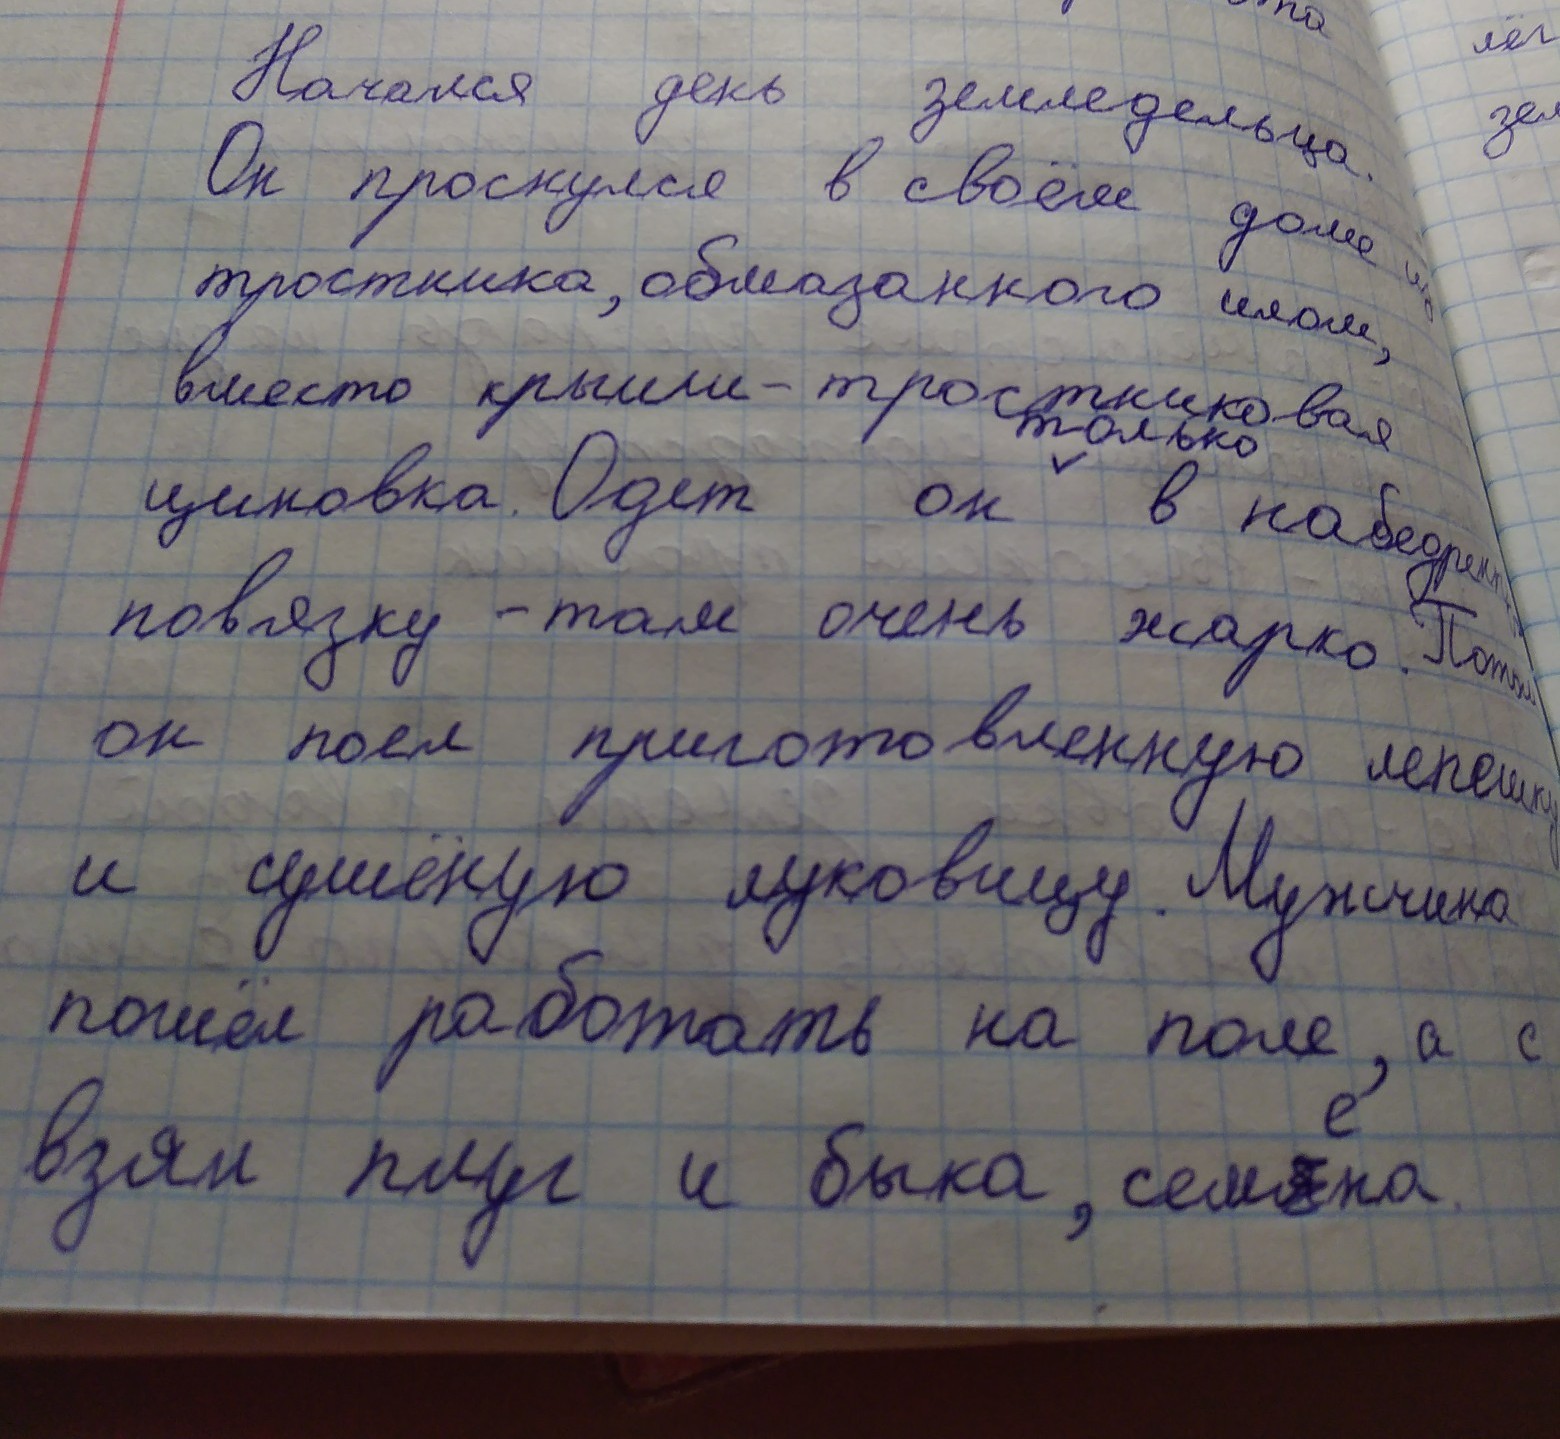 Начался день земледельца.
Он проснулся в своём доме из
тростника, обмазанного илом,
вместо крыши - тростниковая
циновка. Одет он только в
повязку - там очень жарко. Потом
он поел приготовленную лепешку
и сушёную луковицу. Мужчина
пошёл работать на поле, а с
взял плуг и быка, семена.